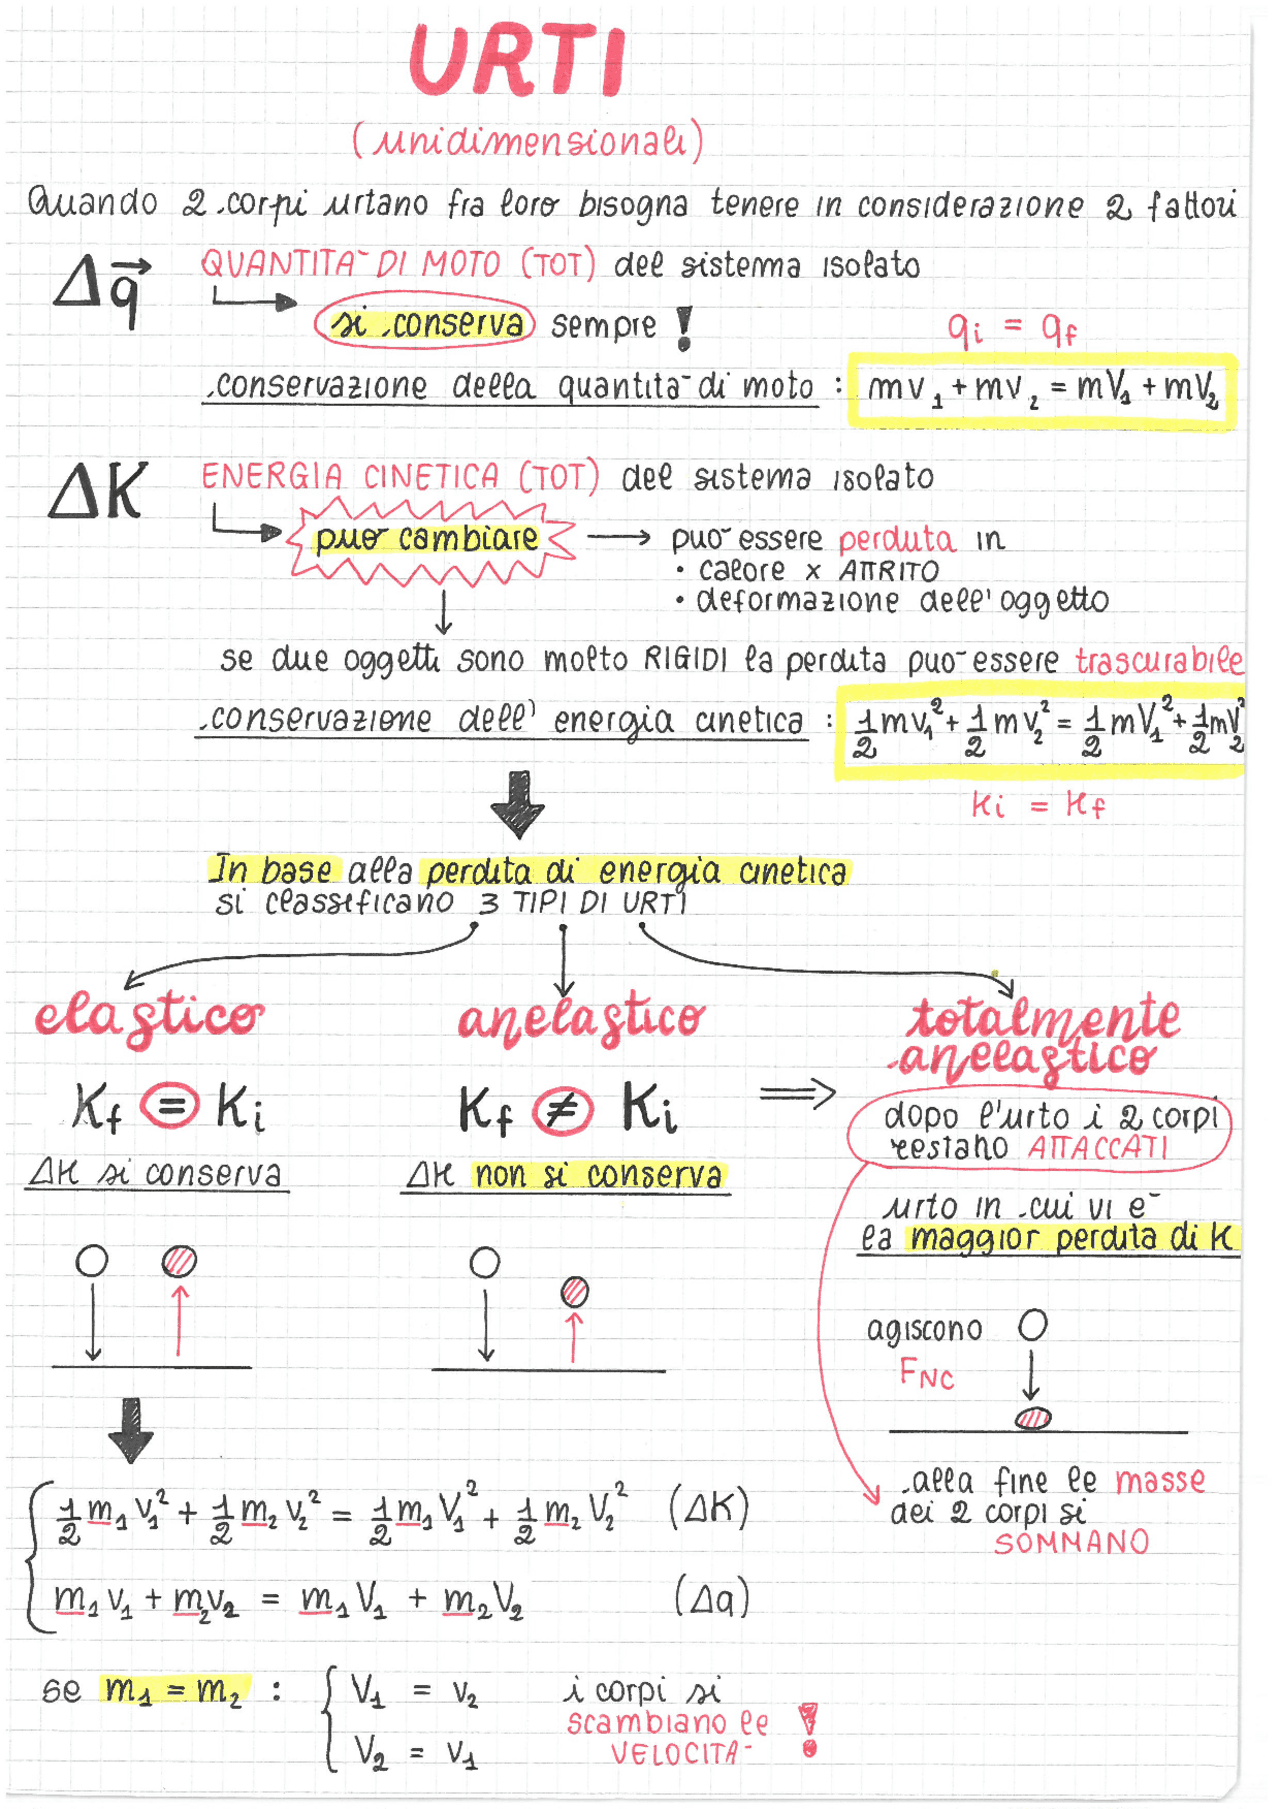 URTI
(unidimensionali)
Quando 2 corpi urtano fra loro bisogna tenere in considerazione 2 fattori
Δq⃗ QUANTITA' DI MOTO (TOT) del sistema isolato
si conserva sempre !
qi = qf
conservazione della quantita' di moto : mv₁ + mv₂ = mV₁ + mV₂
ΔK ENERGIA CINETICA (TOT) del sistema isolato
puo' cambiare → puo' essere perduta in
• calore x ATTRITO
• deformazione dell' oggetto
se due oggetti sono molto RIGIDI la perdita puo' essere trascurabile
conservazione dell' energia cinetica : 1/2 mv₁² + 1/2 mv₂² = 1/2 mV₁² + 1/2 mV₂²
Ki = Kf
In base alla perdita di energia cinetica
si classificano 3 TIPI DI URTI
elastico
Kf = Ki
ΔK si conserva
anelastico
Kf ≠ Ki ⇒
ΔK non si conserva
totalmente
anelastico
dopo l'urto i 2 corpi
restano ATTACCATI
urto in cui vi e'
la maggior perdita di K
agiscono
FNC
alla fine le masse
dei 2 corpi si
SOMMANO
1/2 m₁v₁² + 1/2 m₂v₂² = 1/2 m₁V₁² + 1/2 m₂V₂² (ΔK)
m₁v₁ + m₂v₂ = m₁V₁ + m₂V₂ (Δq)
se m₁ = m₂ : { V₁ = v₂
V₂ = v₁
i corpi si
scambiano le
VELOCITA' !